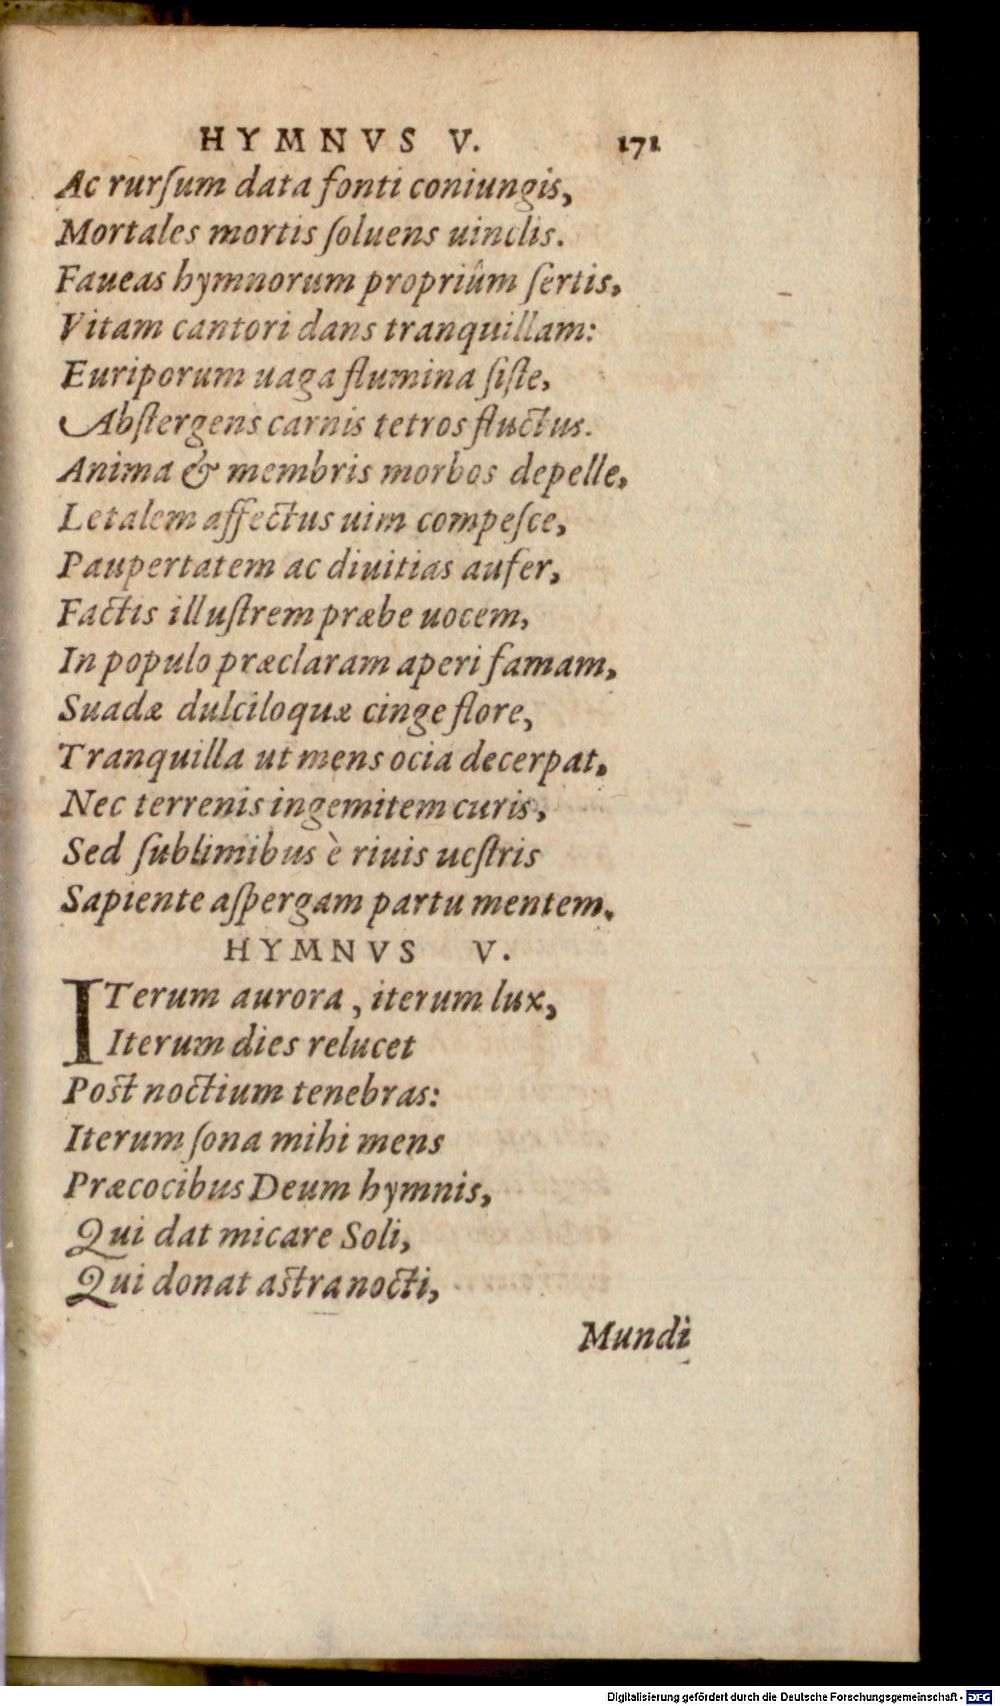 HYMNVS V. 171
Ac rurſum data fonti coniungis,
Mortales mortis ſoluens uinclis.
Faueas hymnorum propriûm ſertis,
Vitam cantori dans tranquillam:
Euriporum uaga flumina ſiſte,
Abſtergens carnis tetros fluctus.
Anima & membris morbos depelle,
Letalem affectus uim compeſce,
Paupertatem ac diuitias aufer,
Factis illuſtrem præbe uocem,
In populo præclaram aperi famam,
Suadæ dulciloquæ cinge flore,
Tranquilla ut mens ocia decerpat,
Nec terrenis ingemitem curis,
Sed ſublimibus è riuis ueſtris
Sapiente aſpergam partu mentem.
HYMNVS V.
ITerum aurora, iterum lux,
Iterum dies relucet
Post noctium tenebras:
Iterum ſona mihi mens
Præcocibus Deum hymnis,
Qui dat micare Soli,
Qui donat astra nocti,
Mundi
Digitalisierung gefördert durch die Deutsche Forschungsgemeinschaft - DFG